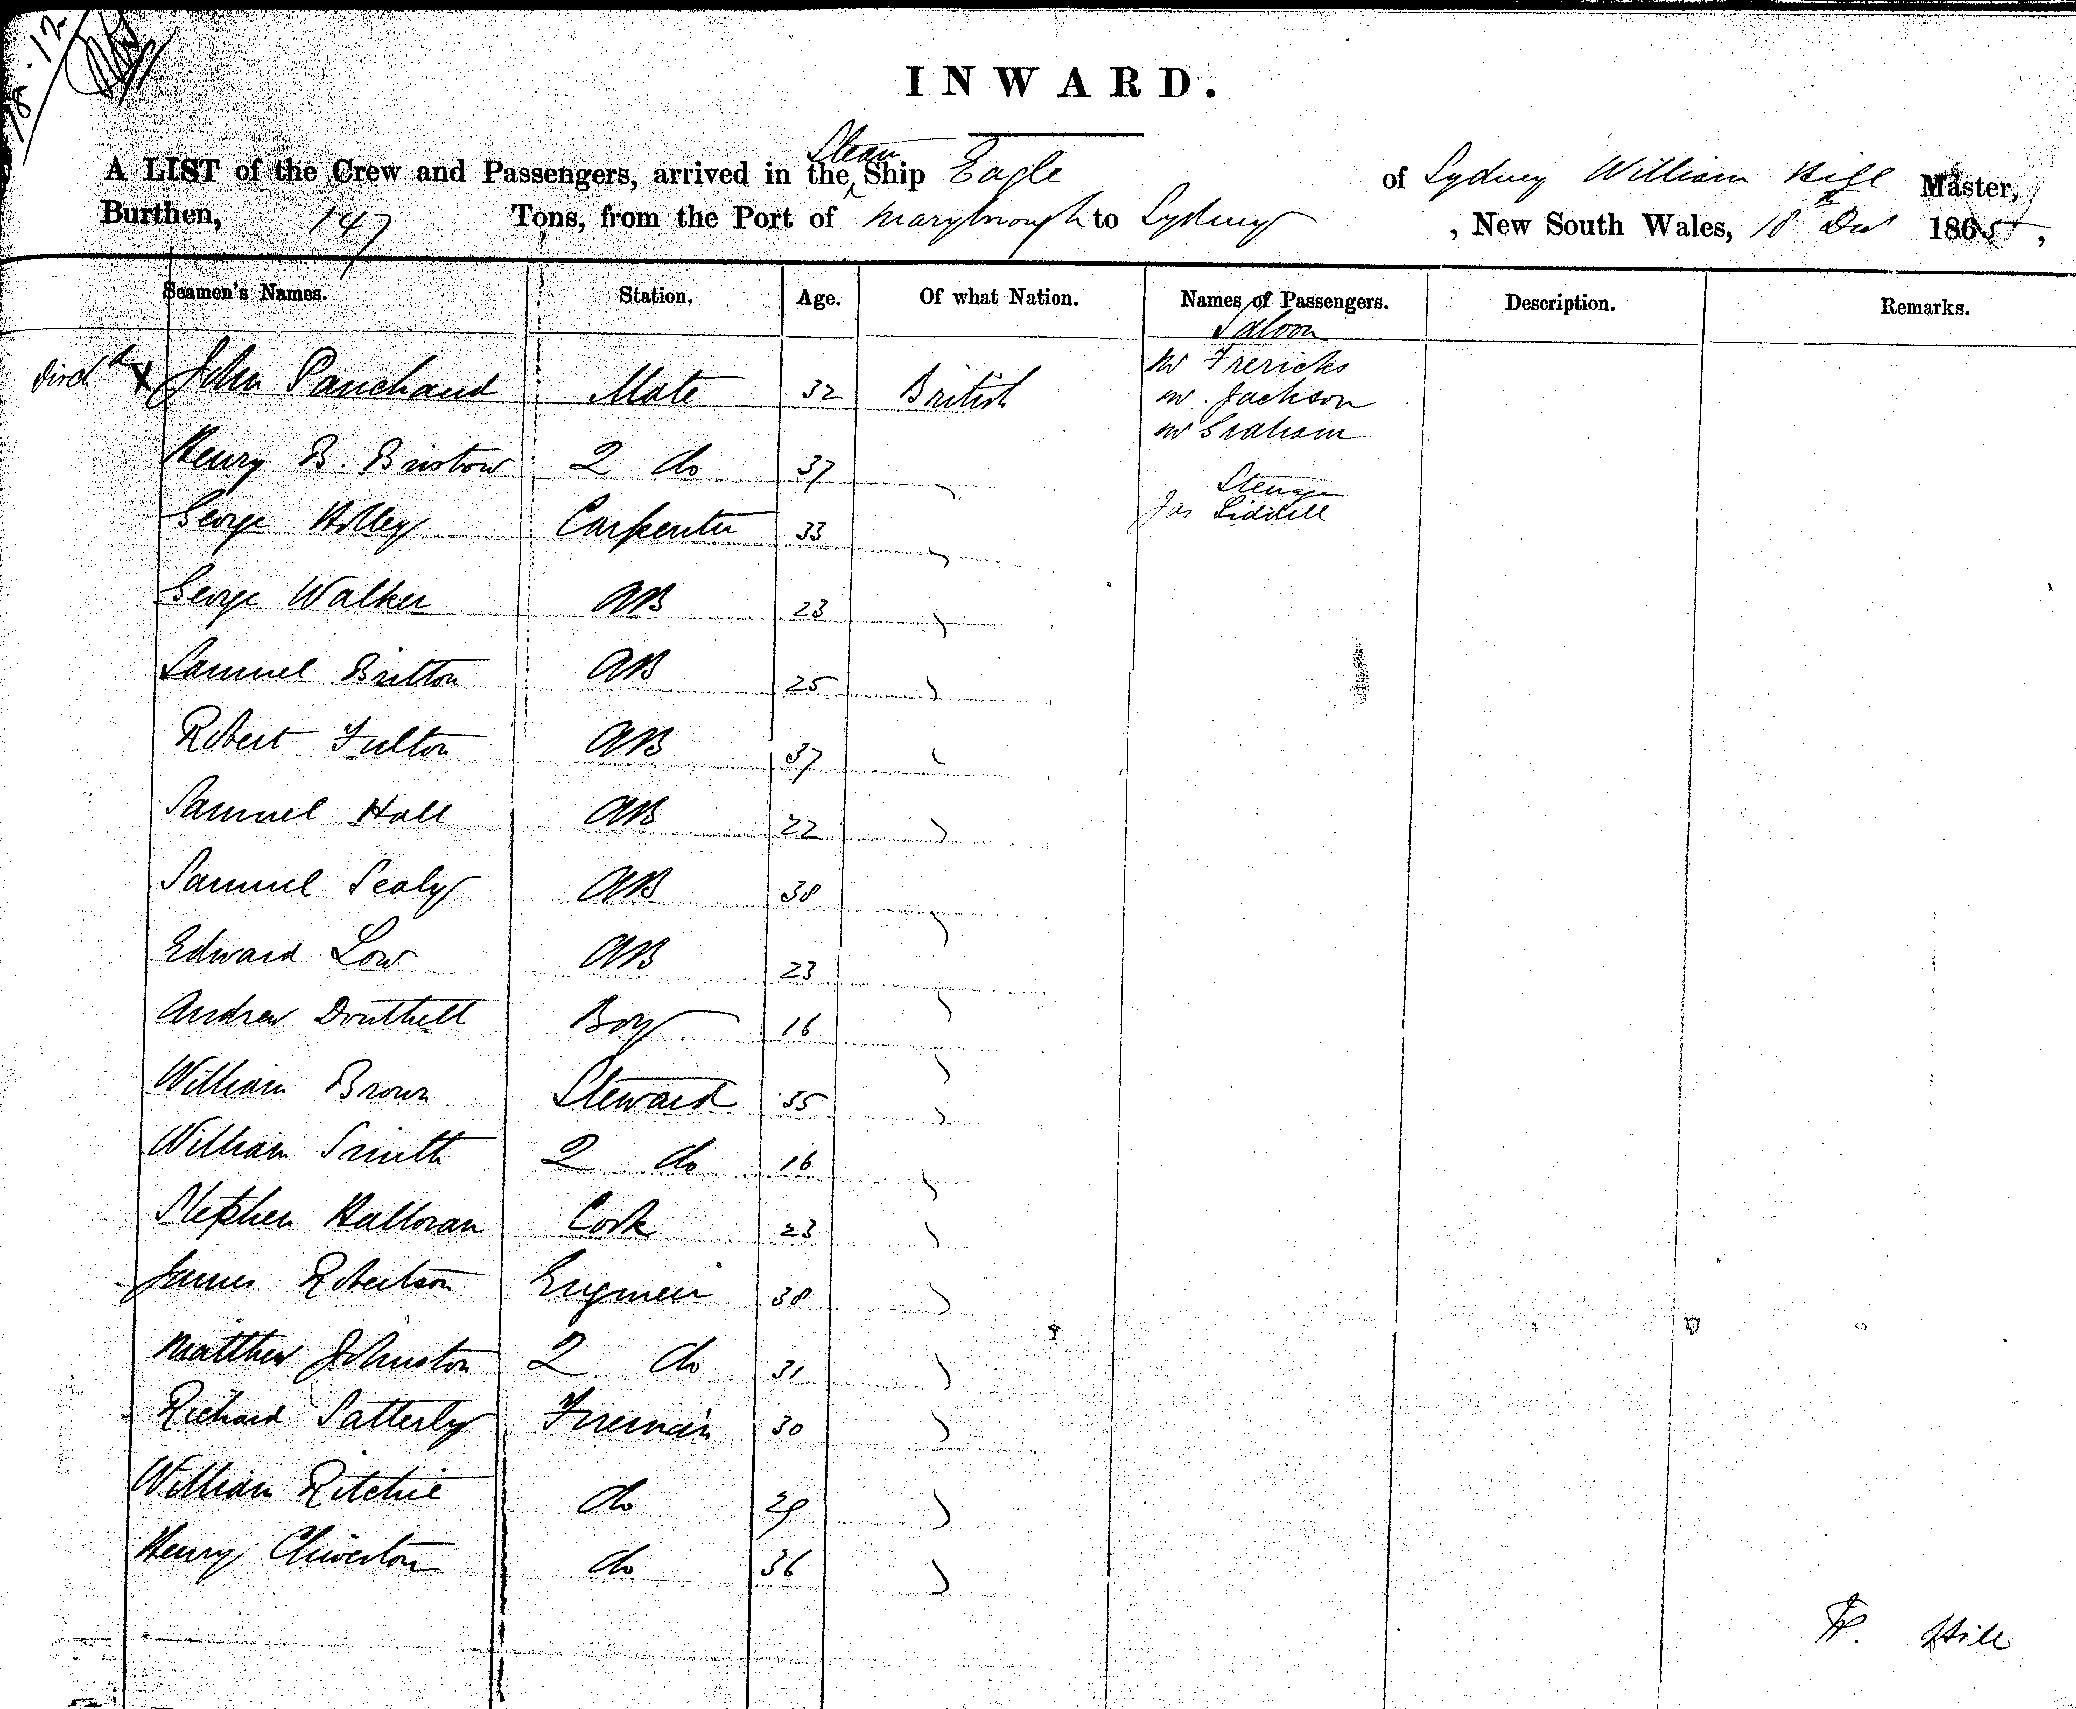 18.12
INWARD.
A LIST of the Crew and Passengers, arrived in the Steam Ship Eagle of Sydney William Hill Master,
Burthen, 147 Tons, from the Port of Maryborough to Sydney, New South Wales, 18th Decr 1865,
Seamen's Names. Station. Age. Of what Nation. Names of Passengers. Description. Remarks.
Saloon
John Panchaud Mate 32 British
Mr Frericks
Mr. Jackson
Mr Graham
Henry B. Bristow 2 do 37
Steerage
Jas Liddell
George Holley Carpenter 33
George Walker AB 23
Samuel Britton AB 25
Robert Fulton AB 37
Samuel Hall AB 22
Samuel Sealy AB 38
Edward Low AB 23
Andrew Douthett Boy 16
William Brown Steward 35
William Smith 2 do 16
Stephen Halloran Cook 23
James Robertson Engineer 38
Matthew Johnston 2 do 31
Richard Satterly Fireman 30
William Ritchie do 29
Henry Chiverton do 36
W. Hill